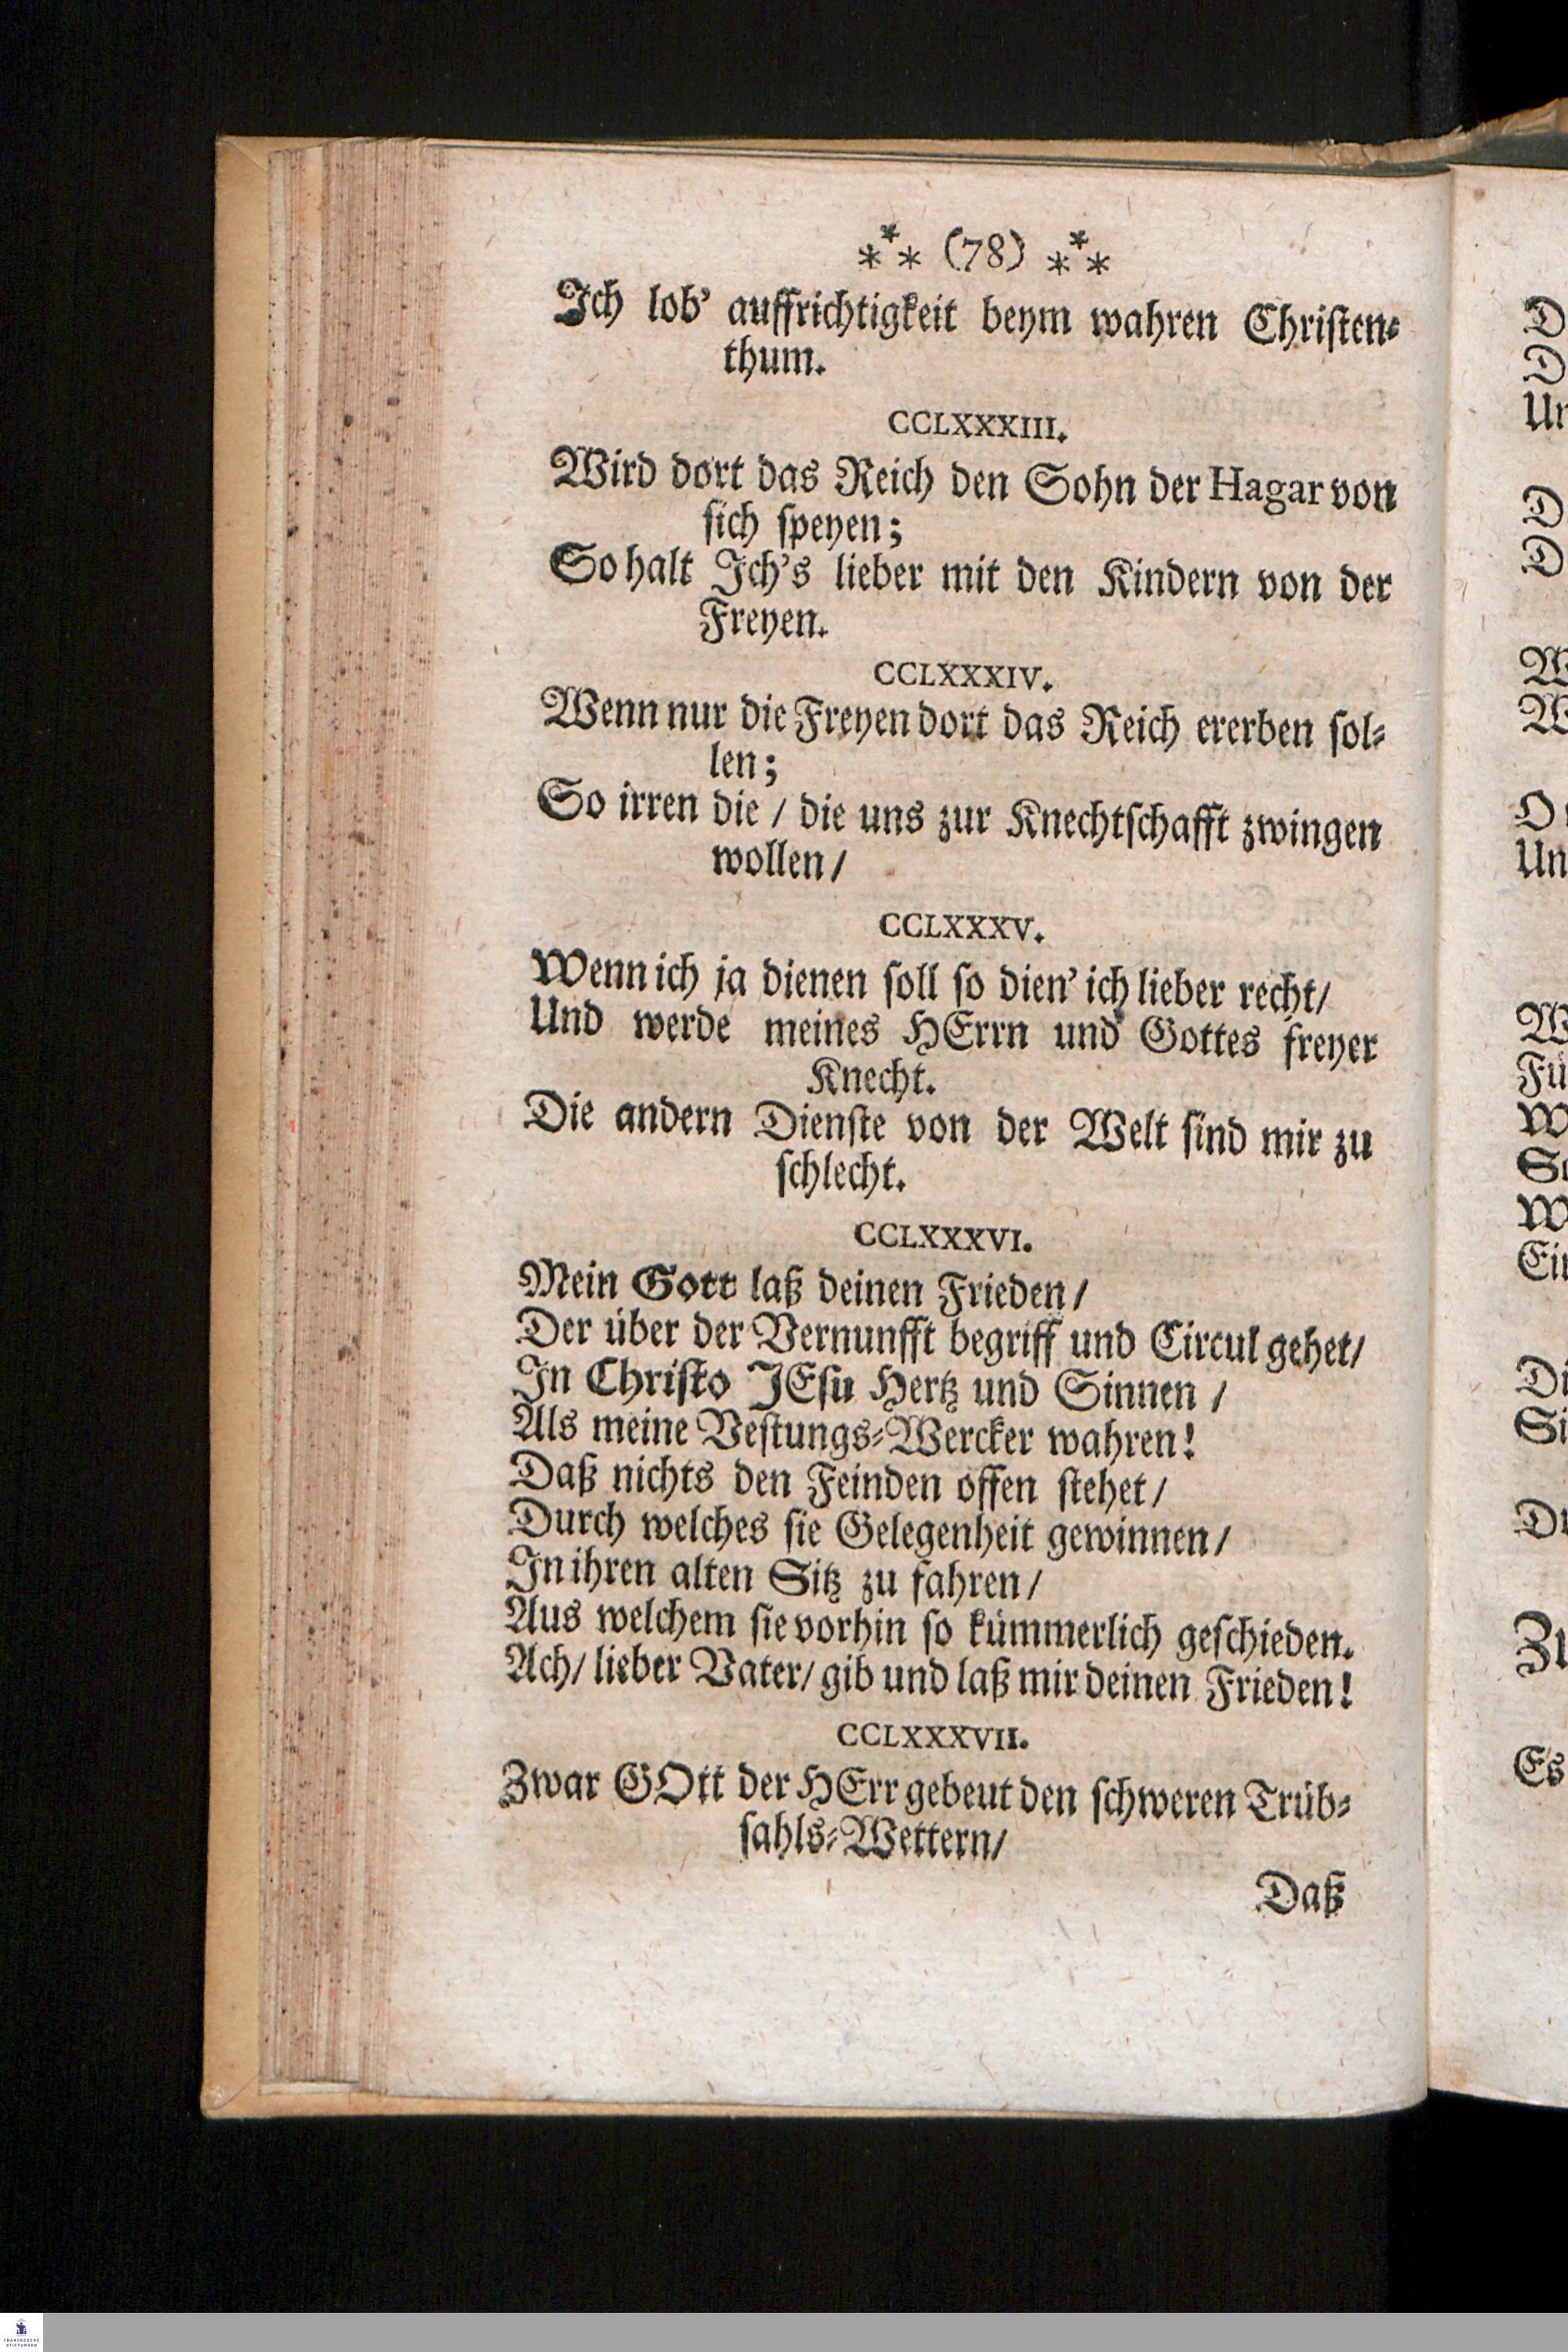 ⁂ (78) ⁂
Ich lob' auffrichtigkeit beym wahren Christen-
thum.
CCLXXXIII.
Wird dort das Reich den Sohn der Hagar von
sich speyen;
So halt Ich's lieber mit den Kindern von der
Freyen.
CCLXXXIV.
Wenn nur die Freyen dort das Reich ererben sol-
len;
So irren die / die uns zur Knechtschafft zwingen
wollen/
CCLXXXV.
Wenn ich ja dienen soll so dien' ich lieber recht/
Und werde meines HErrn und Gottes freyer
Knecht.
Die andern Dienste von der Welt sind mir zu
schlecht.
CCLXXXVI.
Mein Gott laß deinen Frieden/
Der über der Vernunfft begriff und Circul gehet/
In Christo JEsu Hertz und Sinnen /
Als meine Vestungs-Wercker wahren!
Daß nichts den Feinden offen stehet/
Durch welches sie Gelegenheit gewinnen/
In ihren alten Sitz zu fahren/
Aus welchem sie vorhin so kümmerlich geschieden.
Ach/ lieber Vater/ gib und laß mir deinen Frieden!
CCLXXXVII.
Zwar GOtt der HErr gebeut den schweren Trüb-
sahls-Wettern/
Daß
FRANCKESCHE
STIFTUNGEN